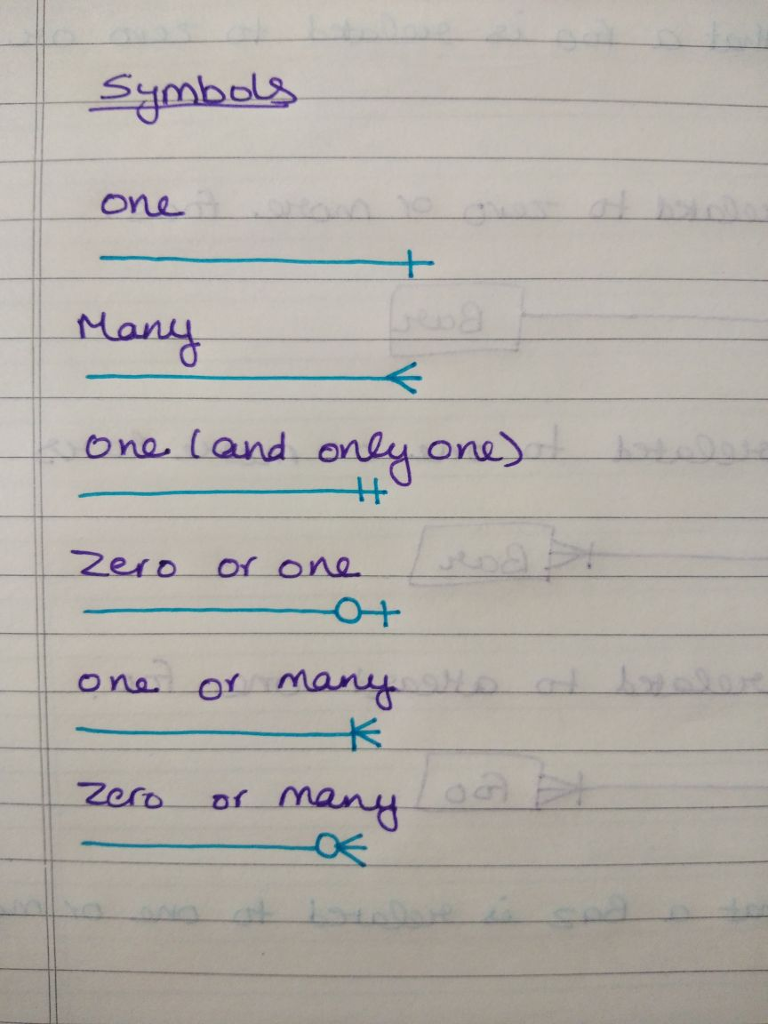 Symbols
one
Many
one (and only one)
Zero or one
one or many
Zero or many